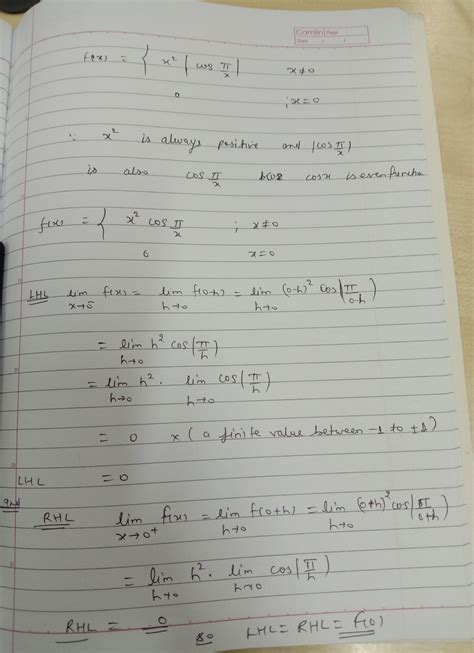 Camlin Page
Date / /
f(x) = { x² |cos π/x| x≠0
0 ; x=0
∵ x² is always positive and |cos π/x|
is also cos π/x coz cosx is even function
f(x) = { x² cos π/x ; x≠0
0 x=0
LHL lim x→0⁻ f(x) = lim h→0 f(0-h) = lim h→0 (0-h)² cos(π/0-h)
= lim h→0 h² cos(π/h)
= lim h→0 h² . lim h→0 cos(π/h)
= 0 x (a finite value between -1 to +1)
LHL = 0
RHL lim x→0⁺ f(x) = lim h→0 f(0+h) = lim h→0 (0+h)² cos(π/0+h)
= lim h→0 h² . lim h→0 cos(π/h)
RHL = 0 so LHL = RHL = f(0)